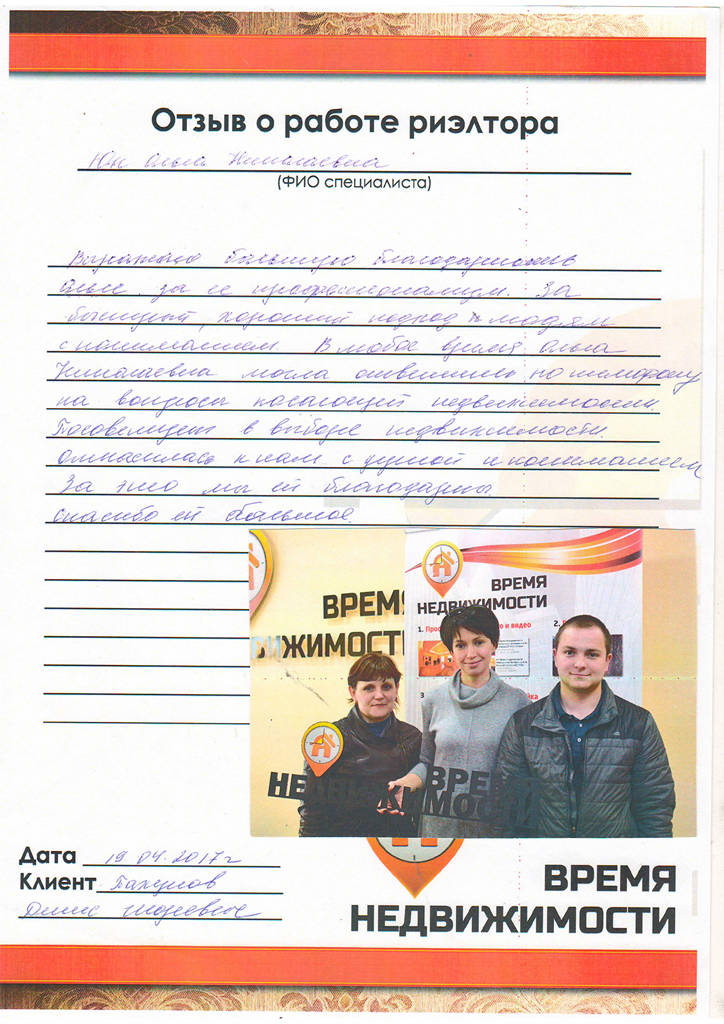 Отзыв о работе риэлтора
Юн Ольга Николаевна
(ФИО специалиста)
Выражаю большую благодарность
Ольге за её профессионализм. За
быстрый, хороший подход к людям
с пониманием. В любое время Ольга
Николаевна могла ответить по телефону
на вопросы касающей недвижимости.
в выборе недвижимости.
относилась к нам с душой и пониманием
За это мы ей благодарны
спасибо ей большое.
ВРЕМЯ
НЕДВИЖИМОСТИ
ВРЕМЯ
НЕДВИЖИМОСТИ
Дата 19 04. 2017г
Клиент
ВРЕМЯ
НЕДВИЖИМОСТИ